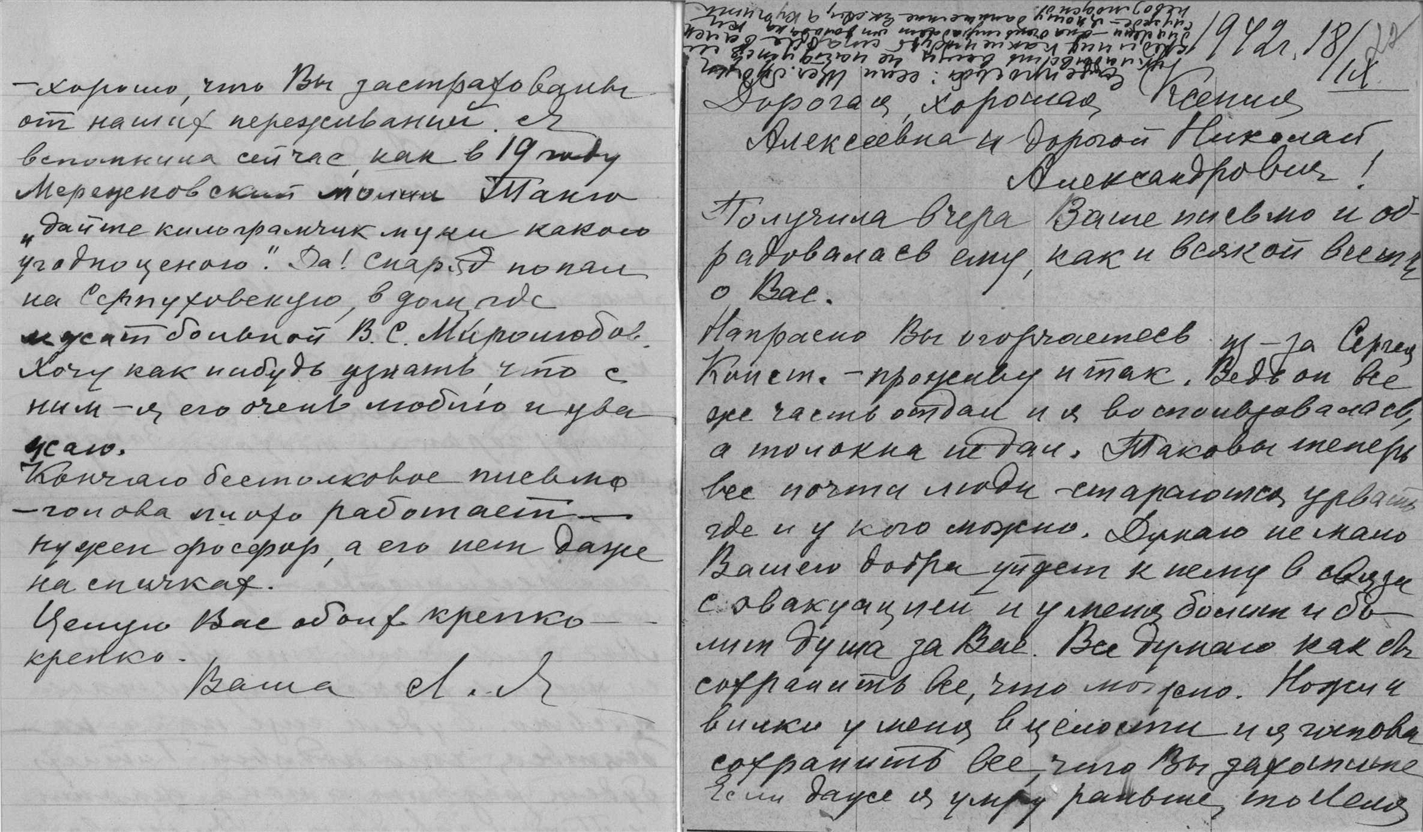 – хорошо, что Вы застрахованы
от наших переживаний. Я
вспомнила сейчас, как в 19 году
Мережковский молил Таню
„дайте килограмчик муки какою
угодно ценою“. Да! Снаряд попал
на Серпуховскую, в дом, где
лежит больной В. С. Миролюбов.
Хочу как нибудь узнать, что с
ним – я его очень люблю и ува
жаю.
Кончаю бестолковое письмо
– голова плохо работает –
нужен фосфор, а его нет даже
на спичках.
Целую Вас обоих крепко –
крепко.
Ваша Л. Я
1942 г. 18/IX
22
Дорогая, хорошая Ксения
Алексеевна и дорогой Николай
Александрович!
Получила вчера Ваше письмо и об-
радовалась ему, как и всякой весть
о Вас.
Напрасно Вы огорчаетесь из-за Сергея
Конст. – проживу и так. Ведь он все
же часть отдал и я воспользовалась,
а толокна не дал. Таковы теперь
все почти люди – стараются урвать
где и у кого можно. Думаю не мало
Вашего добра уйдет к нему в связи
с эвакуацией и у меня болит и бо-
лит душа за Вас. Все думаю как бы
сохранить все, что можно. Ножи и
вилки у меня в целости и я готова
сохранить все, что Вы захотите
Если даже я умру раньше, то Леля